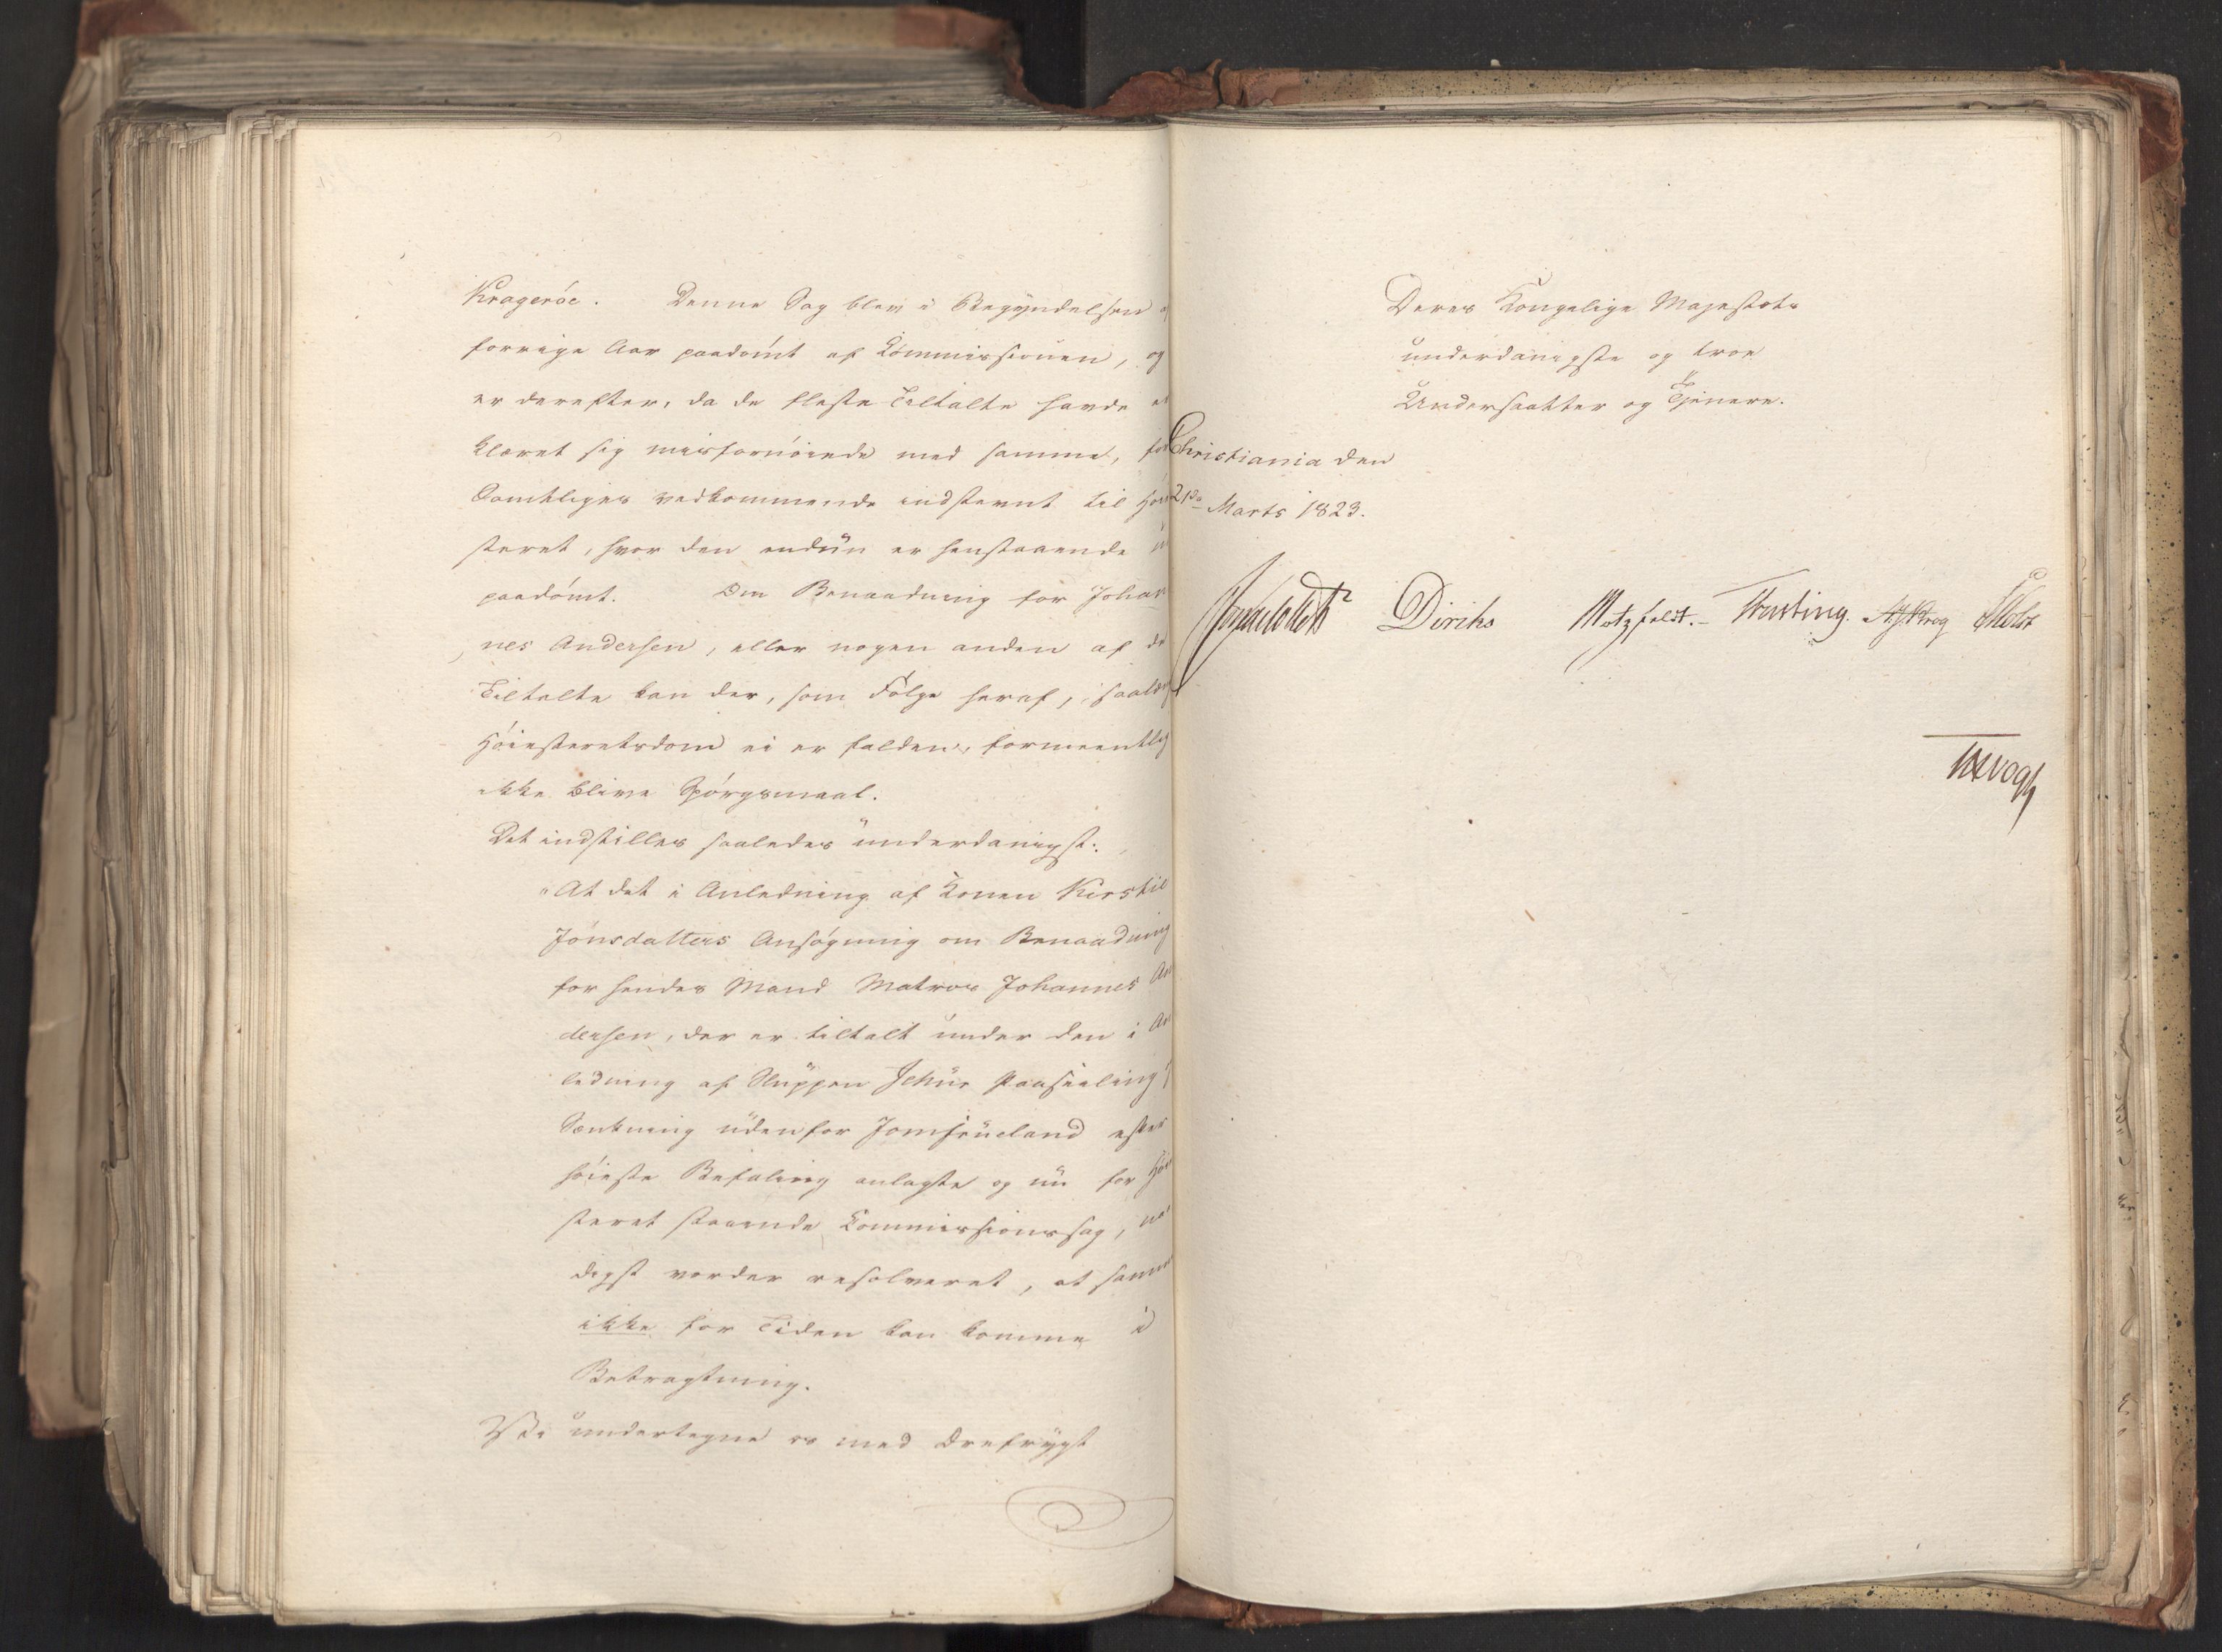 Kragerøe. Denne Sag blev i Begyndelsen
forrige Aar paadømt af Kommissionen, og
er derefter, da de fleste Tiltalte havde er
klæret sig misfornøiede med samme, for
Samtliges vedkommende indstevnt til Høie
steret, hvor den endnu er henstaaende
paadømt. Om Benaadning for Johan
nes Andersen, eller nogen anden af de
Tiltalte kan der, som Følge heraf, saalænge
Høiesteretsdom ei er falden, formeentlig
ikke blive Spørgsmaal.
Det indstilles saaledes underdanigst:
"At det i Anledning af Konen Kirstie
Jønsdatters Ansøgning om Benaadning
for hendes Mand Matros Johannes An
dersen, der er tiltalt under den i An
ledning af Sluppen Jehus
Sænkning udenfor Jomfrueland efter
høieste Befaling anlagte og nu for Høie
steret staaende Commissionssag, naa
digst vorder resolveret, at samme
ikke for Tiden kan komme i
Betragtning.
Vi undertegne os med Ærefrygt
Deres Kongelige Majestæts
underdanigste og troe
Undersaatter og Tjenere.
Christiania den
21de Marts 1823.
Diriks Motzfeldt. Fasting. Krog Holst
Vogt